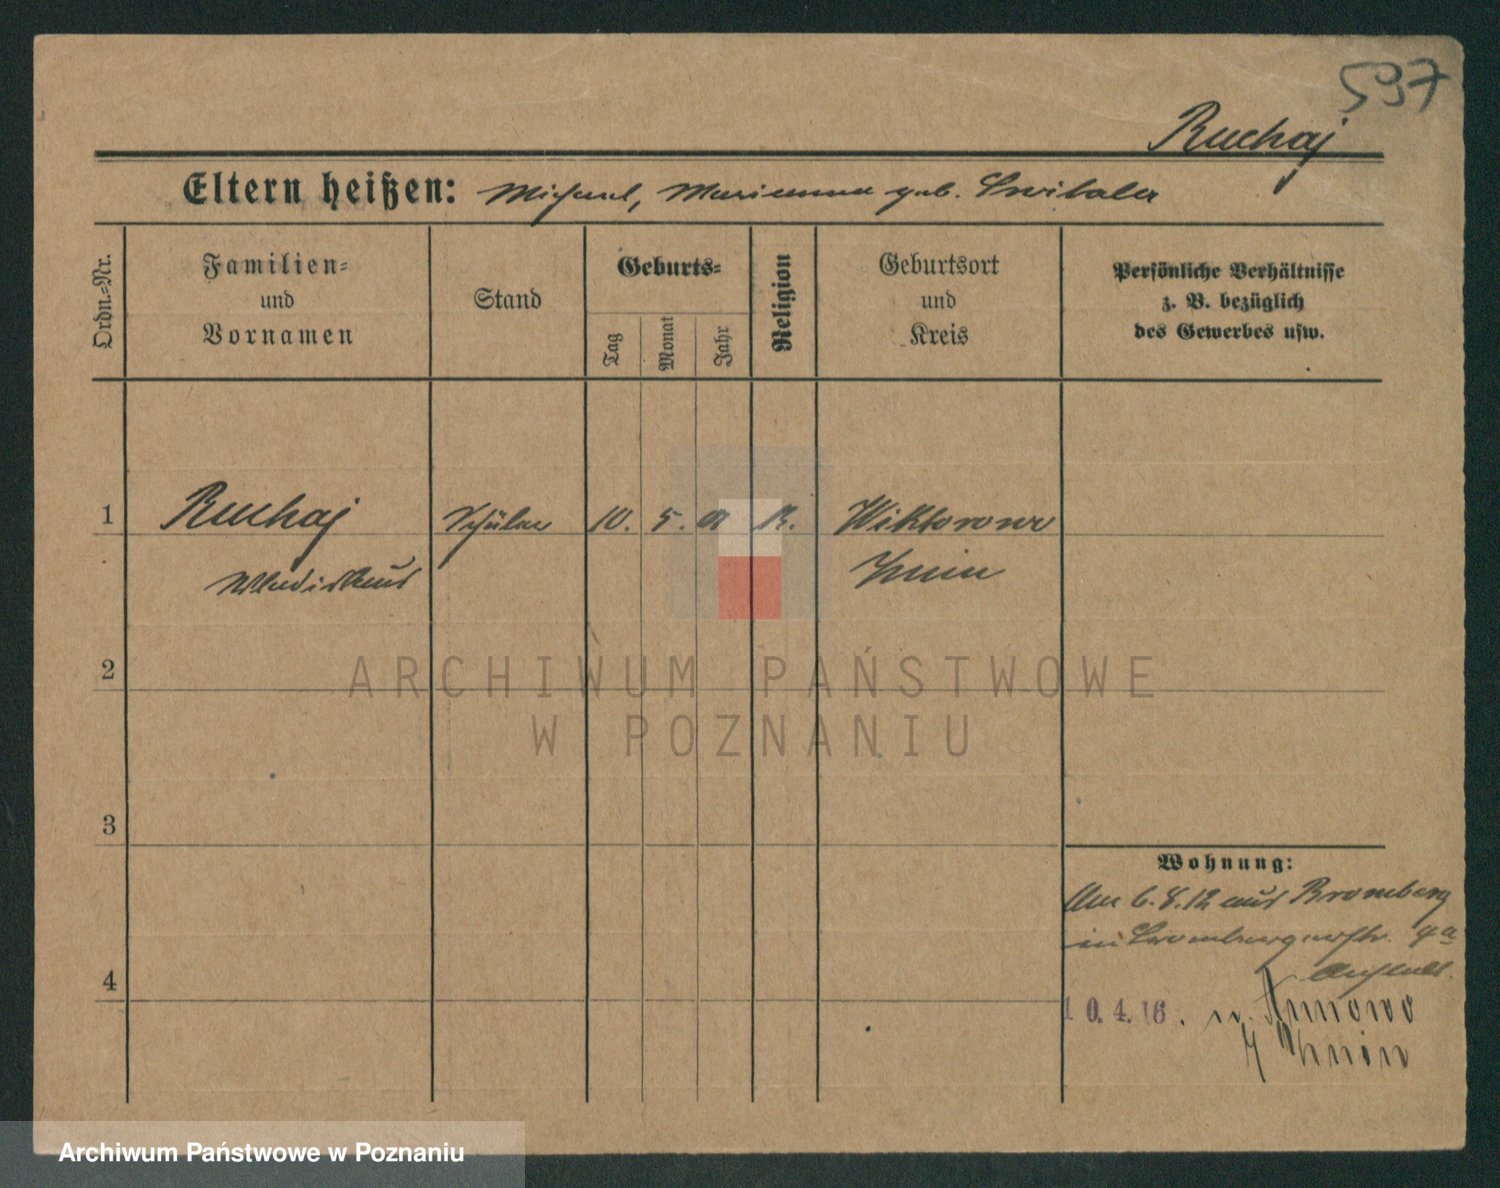 597
Ruchaj
Eltern heißen: Michael, Marianna geb. Switala
Ordn.=Nr.
Familien=
und
Vornamen
Stand
Geburts=
Tag
Monat
Jahr
Religion
Geburtsort
und
Kreis
Persönliche Verhältnisse
z. B. bezüglich
des Gewerbes usw.
1 Ruchaj Schüler 10. 5. K. Wiktorowo
Wladislaus Znin
2
ARCHIWUM PAŃSTWOWE
W POZNANIU
3
Wohnung:
Am 6.8.12 aus Bromberg
in
4
10.4.16. n.
Znin
Archiwum Państwowe w Poznaniu